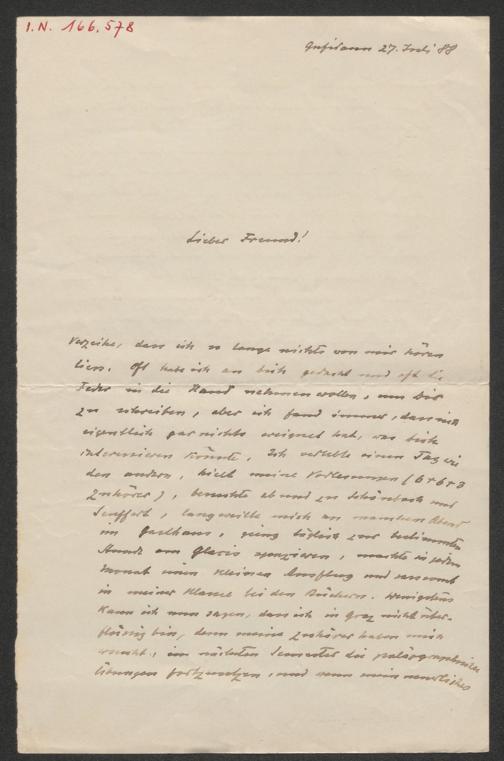 I.N. 166.578
Gufidaun 27. Juli 88
Lieber Freund!
Verzeihe, dass ich so lange nichts von mir hören
liess. Oft habe ich an dich gedacht und oft die
Feder in die Hand nehmen wollen, um dir
zu schreiben, aber ich fand immer, dass sich
eigentlich gar nichts ereignet hat, was dich
interessieren könnte. Ich verlebte einen Tag wie
den andern, hielt meine Vorlesungen (6+6+3
Zuhörer), besuchte ab und zu Schönbach und
Seuffert, langweilte mich an manchem Abend
im Gasthaus, ging täglich zur bestimmten
Stunde am Glacis spazieren, machte in jedem
Monat einen kleinen Ausflug und sass sonst
in meiner Klause bei den Büchern. Wenigstens
kann ich nun sagen, dass ich in Graz nicht über-
flüssig bin, denn meine Zuhörer haben mich
ersucht, im nächsten Semester die paläographischen
Übungen fortzusetzen, und wenn mein neuerliches